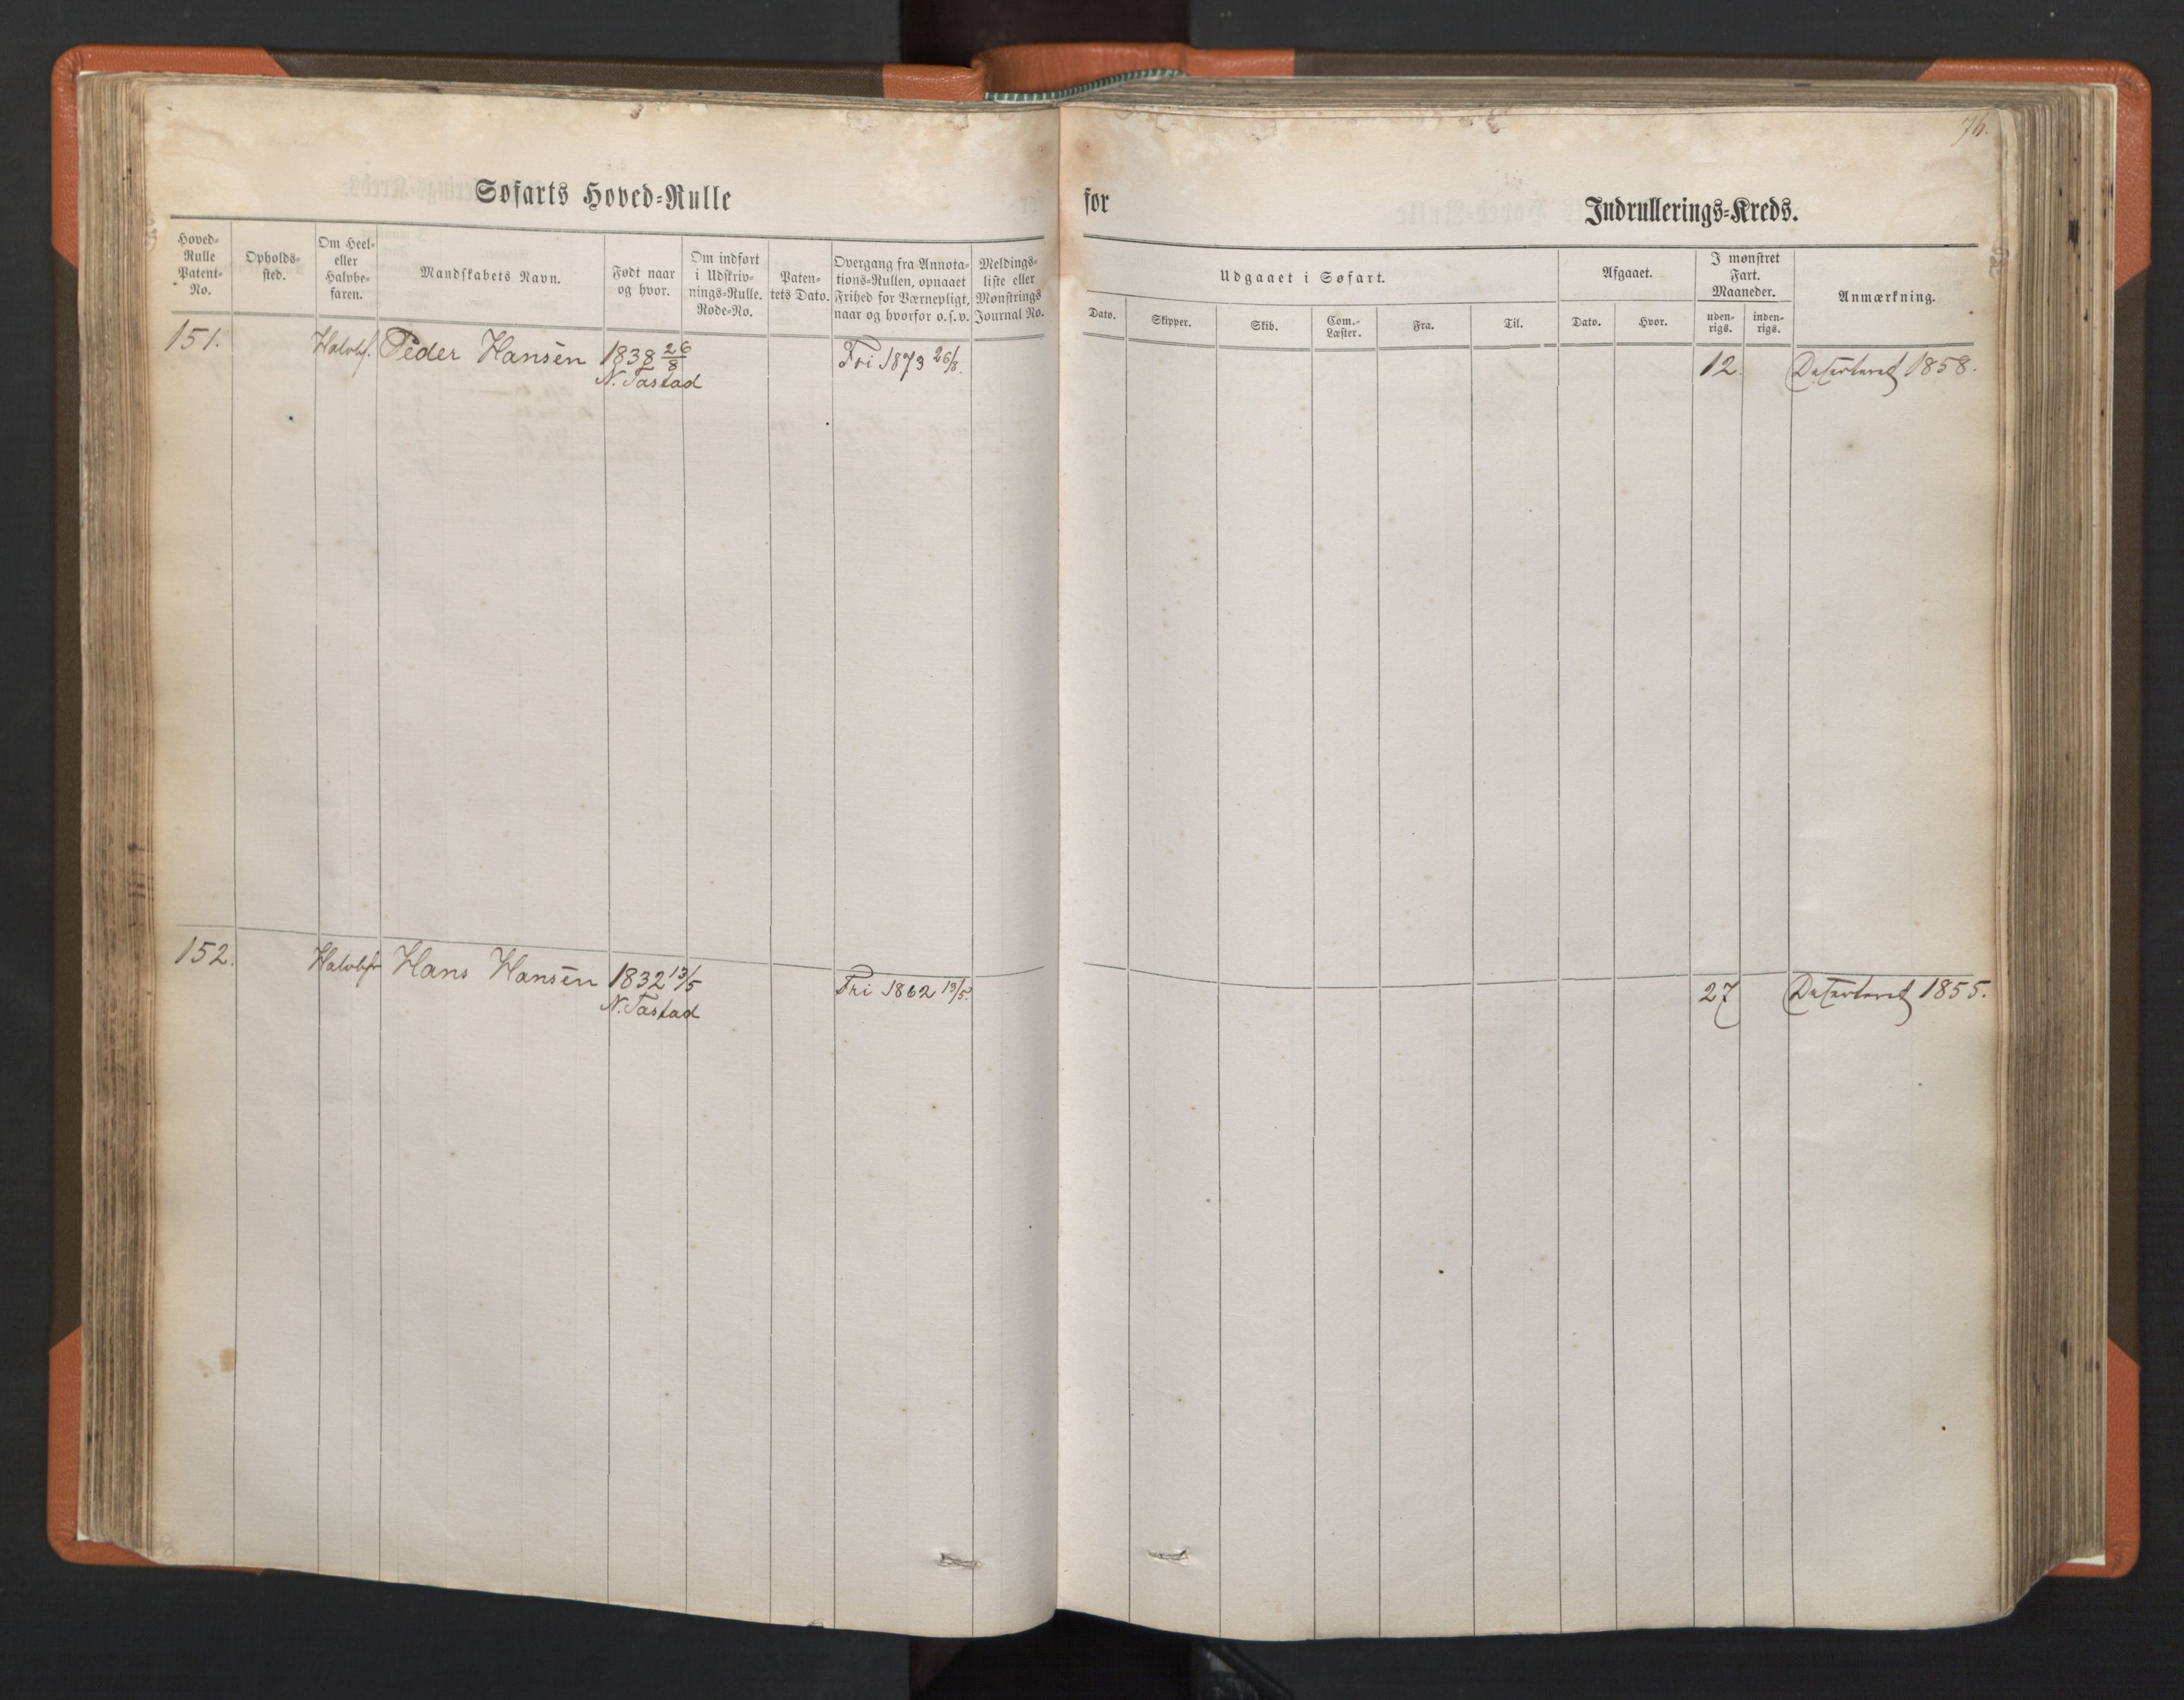 76.
Søfarts Hoved-Rulle
for
Indrullerings-Kreds.
Hoved-
Rulle
Patent-
No.
Opholds-
sted.
Om Heel-
eller
Halvbe-
faren.
Mandskabets Navn.
Født naar
og hvor.
Om indført
i Udskriv-
nings-Rulle.
Rode-No.
Paten-
tets Dato.
Overgang fra Annota-
tions-Rullen, opnaaet
Frihed for Værnepligt,
naar og hvorfor o.s.v.
Meldings-
liste eller
Mønstrings
Journal No.
Udgaaet i Søfart.
Dato.
Skipper.
Skib.
Com.-
Læster.
Fra.
Til.
Afgaaet.
Dato.
Hvor.
I mønstret
Fart.
Maaneder.
uden-
rigs.
inden-
rigs.
Anmærkning.
151. Halvbf. Peder Hansen 1838 26/8 Fri 1873 26/8. 12. Deserteret 1858.
N. Tastad
152. Halvbfr Hans Hansen 1832 13/5 Fri 1862 13/5. 27 Deserteret 1855.
N. Tastad